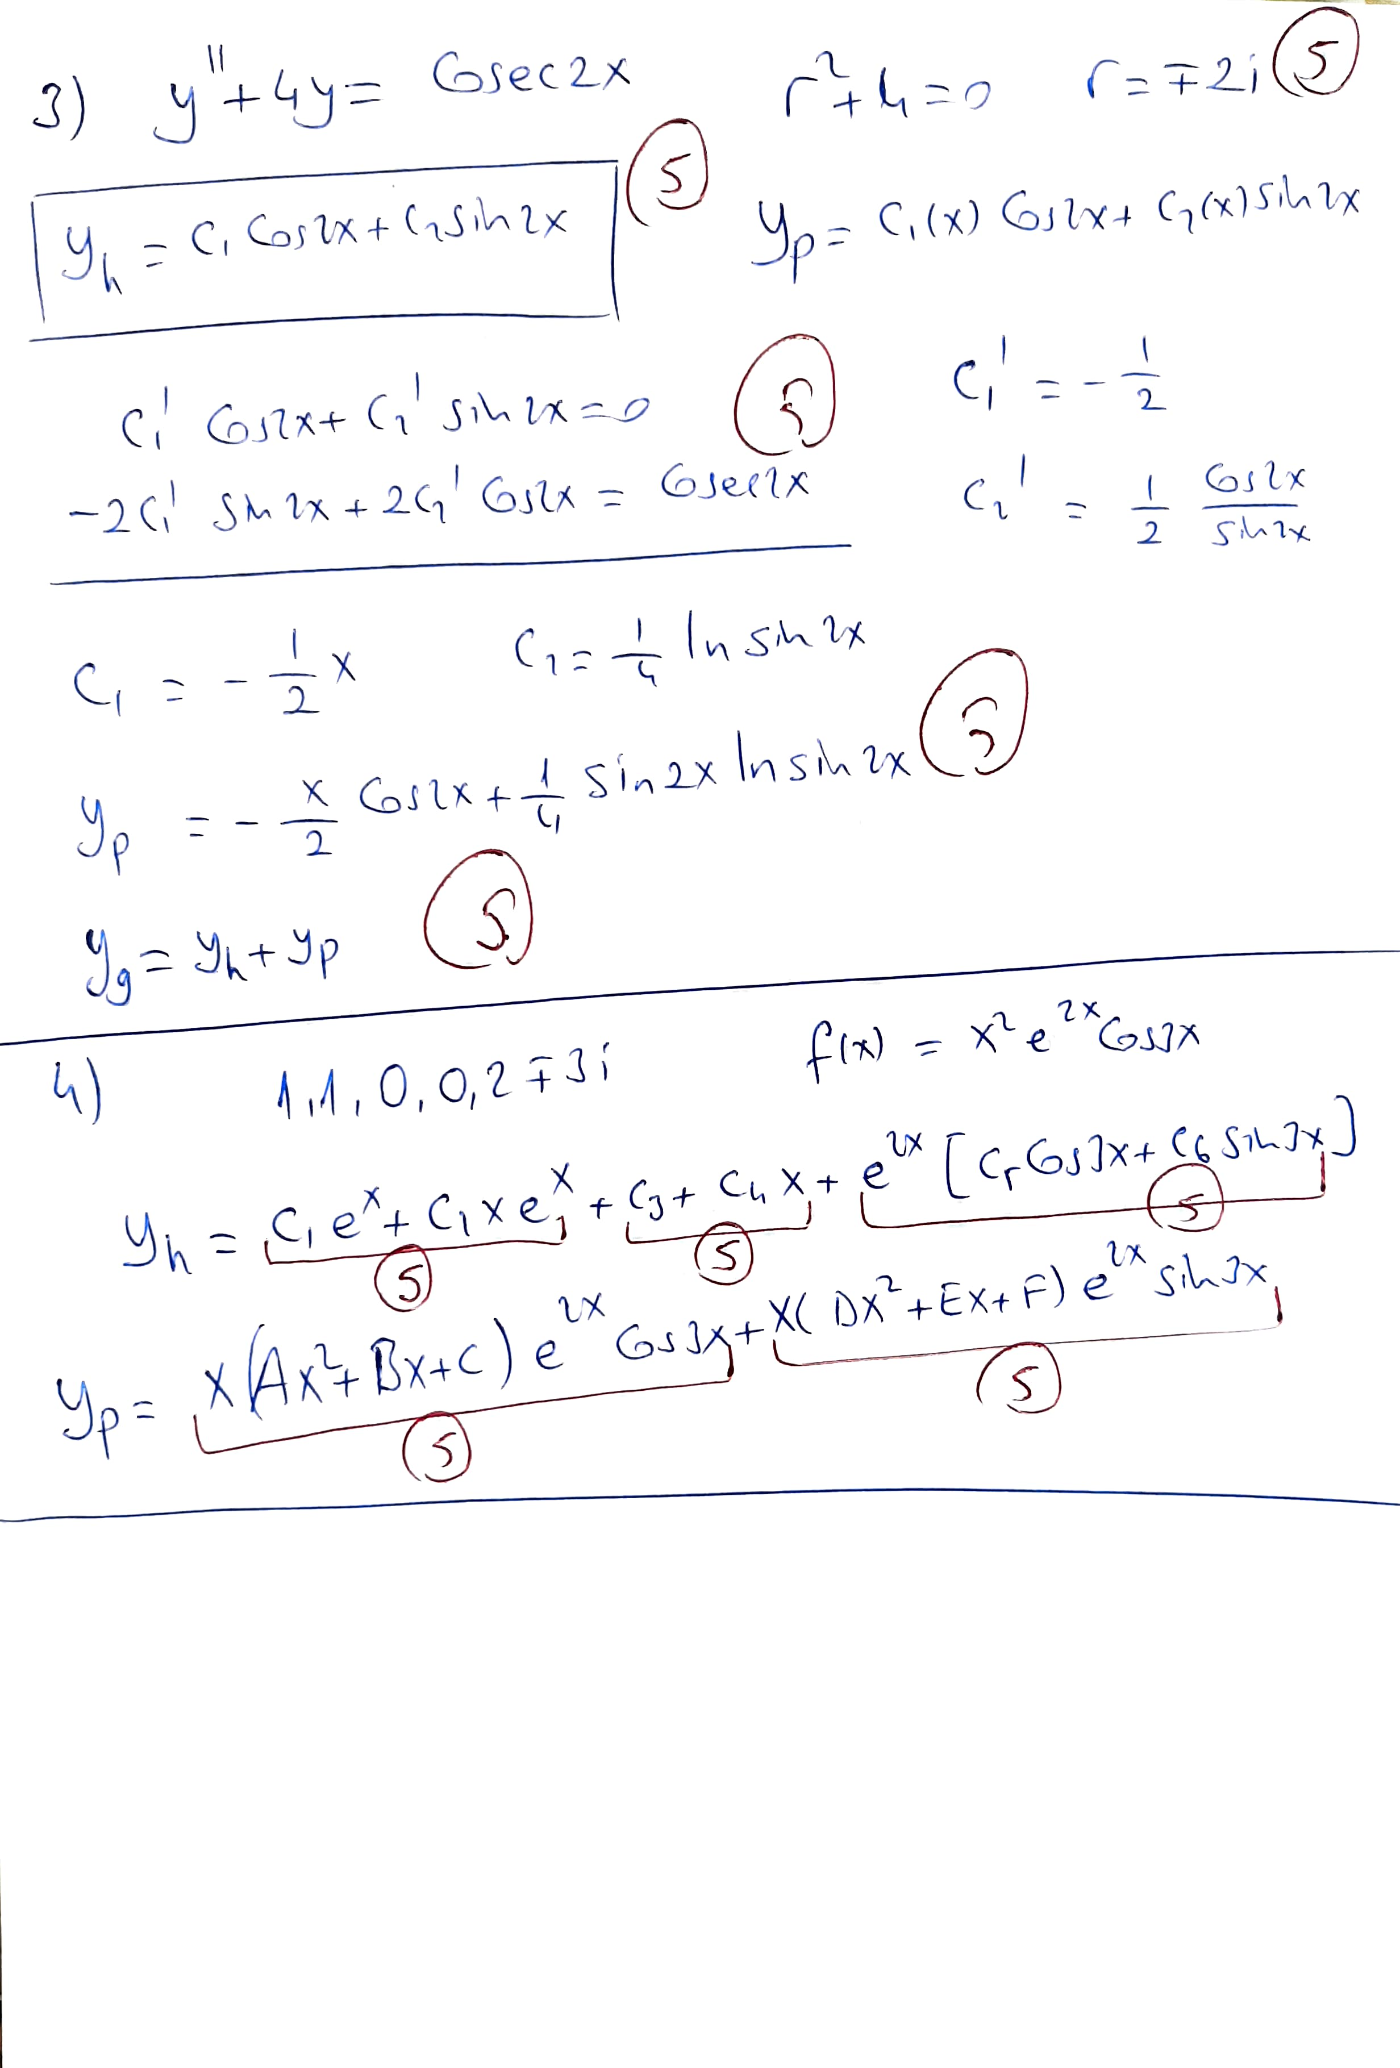 3) y''+4y= Cosec2x r²+4=0 r=∓2i (5)
y_h = C₁ Cos2x + C₂ sin2x (5) y_p = C₁(x) Cos2x + C₂(x) sin2x
C₁' Cos2x + C₂' sin2x = 0 (5) C₁' = -1/2
-2C₁' sin2x + 2C₂' Cos2x = Cosec2x C₂' = 1/2 Cos2x/sin2x
C₁ = -1/2 x C₂ = 1/4 ln sin2x
y_p = -x/2 Cos2x + 1/4 sin2x ln sin2x (5)
y_g = y_h + y_p (5)
4) 1,1,0,0,2∓3i f(x) = x² e^{2x} Cos3x
y_h = C₁e^x + C₂xe^x + C₃ + C₄x + e^{2x} [C₅ Cos3x + C₆ sin3x]
(5) (5) (5)
y_p = x(Ax²+Bx+C) e^{2x} Cos3x + x(Dx²+Ex+F) e^{2x} sin3x
(5) (5)